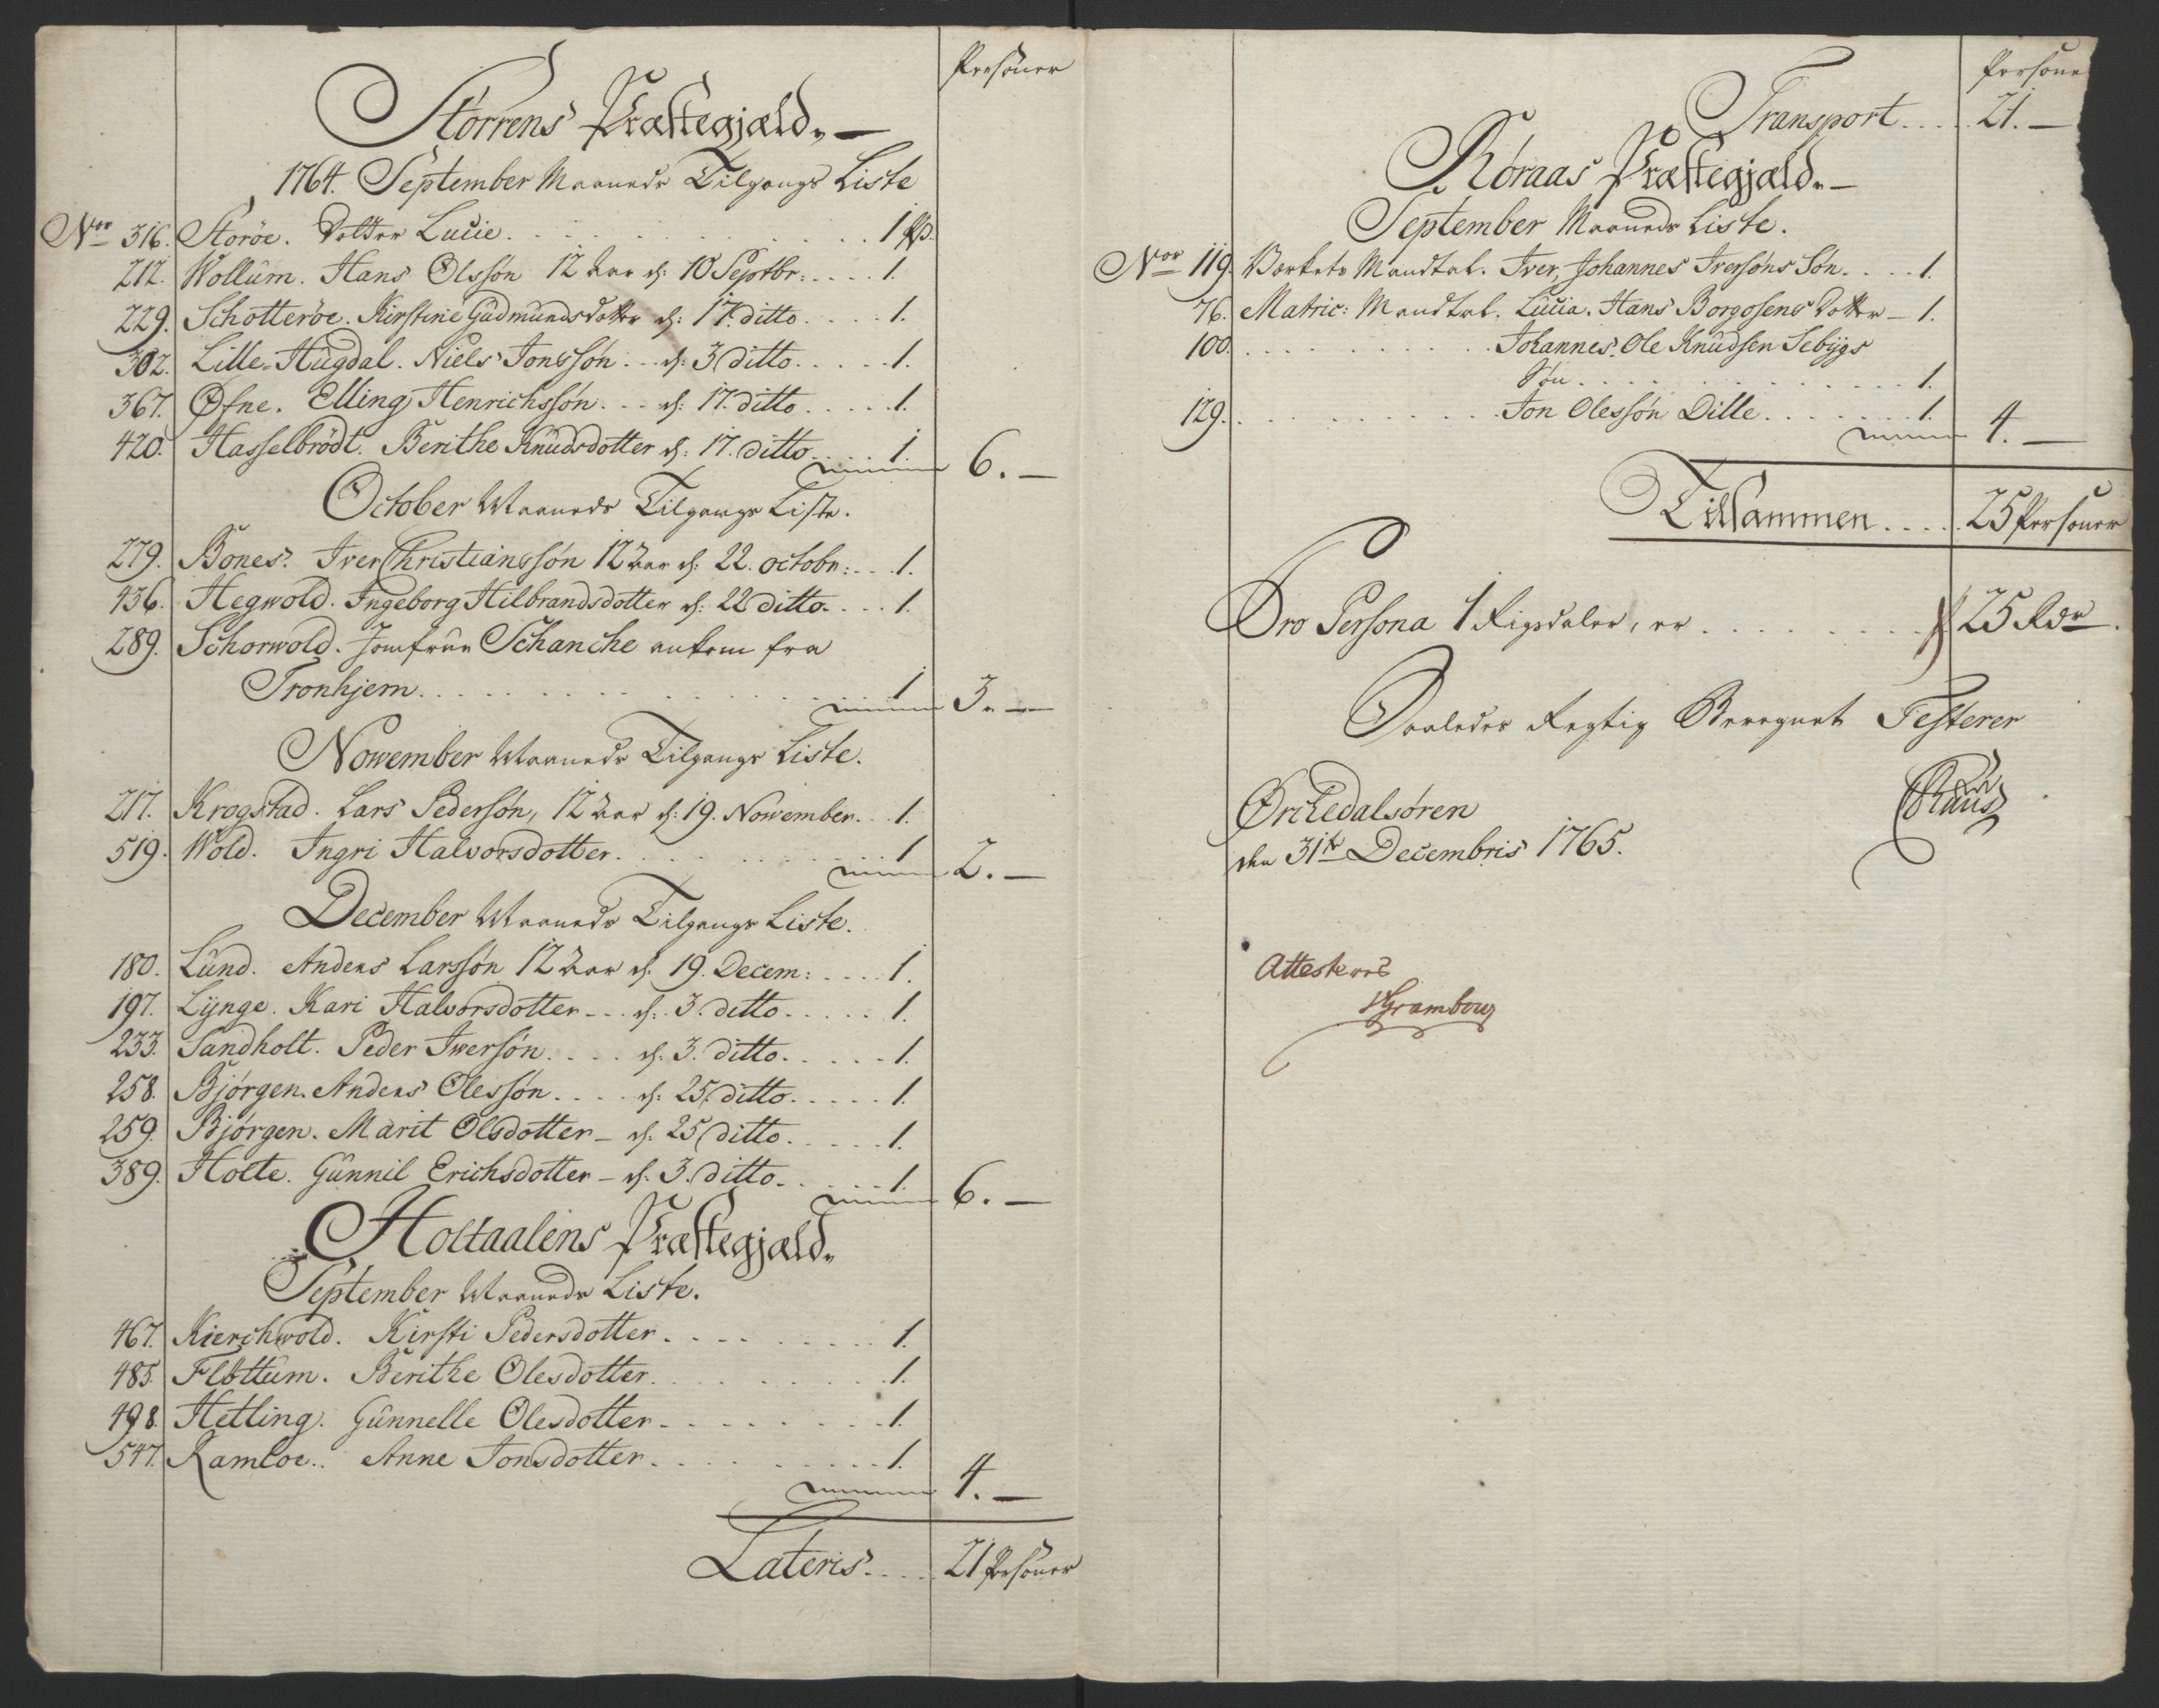 Personer
Störrens Præstegjæld. —
1764. September Maaneds Tilgangs Liste
Nor 316. Storöe. Dotter Lucie . . . 1 Ps.
212. Wollum. Hans Olssön 12 aar d: 10 Septbr: . . . 1.
229. Schotteröe. Kirstine Gudmundsdotter d: 17. ditto . . . 1.
302. Lille-Hugdal. Niels Jonssön . . . d: 3 ditto . . . 1.
367. Øfne. Elling Henrichssön . . . d: 17. ditto . . . 1.
420. Hasselbrödt. Berithe Knudsdotter d: 17. ditto . . . 1. 6. —
October Maaneds Tilgangs Liste.
279. Bones. Iver Christianssön 12 aar d: 22. octobr: . . . 1.
436. Hegwold. Ingeborg Hilbrandsdotter d: 22 ditto . . . 1.
289. Schorwold. Jomfrue Schanche ankom fra
Tronhjem . . . 1 3. —
Nowember Maaneds Tilgangs Liste.
217. Krogstad. Lars Pedersön, 12 aar d: 19. Nowember . . . 1.
519. Wold. Ingri Halvorsdotter . . . 1 2. —
December Maaneds Tilgangs Liste.
180. Lund. Anders Larssön 12 aar d. 19. Decem: . . . 1.
197. Lynge. Kari Halvorsdotter . . . d: 3. ditto . . . 1.
233. Sandholt. Peder Iwersön . . . d: 3. ditto . . . 1.
258. Bjørgen. Anders Olessön . . . d: 25 ditto . . . 1.
259. Bjørgen. Marit Olsdotter – d. 25 ditto . . . 1.
389. Holte. Gunnil Erichsdotter – d. 3. ditto . . . 1. 6. —
Holtaalens Præstegjæld.
September Maaneds Liste.
467. Kierchwold. Kirsti Pedersdotter . . . 1.
485. Flöttum. Berithe Olesdotter . . . 1.
498. Hetling. Gunnelle Olesdotter . . . 1.
547. Ramloe. Anne Jonsdotter . . . 1. 4. —
Lateris . . . 21 Personer
Persone
Transport . . . 21. —
Röraas Præstegjæld. —
September Maaneds Liste.
Nor 119. Værkets Mandtal. Iver, Johannes Iversöns Sön . . . 1.
76. Matric: Mandtal. Lucia. Hans Borgosens Dotter – 1.
100. . . . Johannes. Ole Knudsen Sebygs
Søn . . . 1.
129. . . . Jon Olessön Dille . . . 1. 4. —
Tilsammen . . . 25 Personer
Pro Persona 1 Rigsdaler, er . . . 25 Rdr.
Saaledes Regtig Beregnet Testerer
Ørchedalsøren
den 31te Decembris 1765.
Attesteres